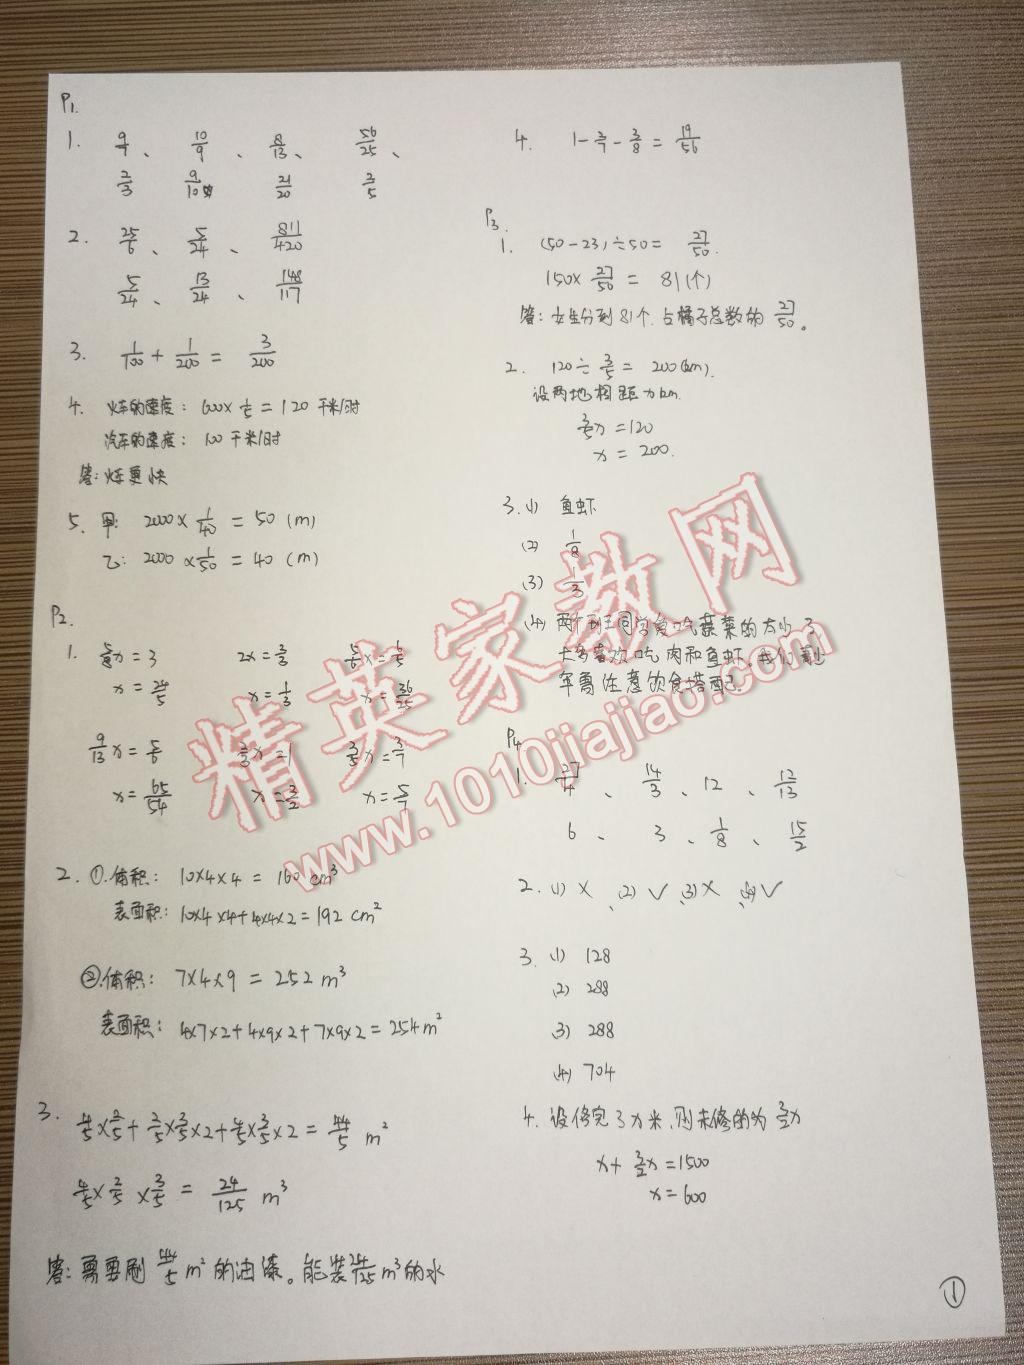 P1.
1. 9/7、 10/9、 8/13、 56/25、
2/3 9/10 21/20 2/5
2. 25/6、 5/24、 811/420
5/24、 13/24、 148/117
3. 1/100 + 1/200 = 3/200
4. 火车的速度: 600×1/5=120千米/时
汽车的速度: 100千米/时
答: 火车更快
5. 甲: 2000×1/40 = 50 (m)
乙: 2000×1/50 = 40 (m)
P2.
1. 5/8x=3 2x=2/3 5/6x=6/5
x=24/5 x=1/3 x=36/25
9/13x=5/6 2/3x=1 3/5x=3/7
x=65/54 x=3/2 x=5/7
2. ①.体积: 10×4×4 = 160 cm³
表面积: 10×4×4+4×4×2=192 cm²
②.体积: 7×4×9 = 252 m³
表面积: 4×7×2+4×9×2+7×9×2=254m²
3. 4/5×2/5+2/5×3/5×2+4/5×3/5×2=44/5 m²
4/5×2/5×3/5 = 24/125 m³
答: 需要刷44/5m²的油漆。能装24/125m³的水
4. 1-3/7-3/8=19/56
P3.
1. (50-23)÷50= 27/50.
150×27/50 = 81(个)
答: 女生分到81个. 占橘子总数的27/50。
2. 120÷3/5= 200(km).
设两地相距xkm.
3/5x=120
x=200.
3.(1) 鱼虾
(2) 1/8
(3) 1/3
(4) 两个班同学爱吃蔬菜的太小了
大多喜欢吃肉和鱼虾。我们到
年需注意饮食搭配。
P4
1. 27/4、 14/3、12、 12/13
6、 3、1/8、 15/2
2. (1) ×、(2) ✓、(3) ×、(4) ✓
3. (1) 128
(2) 288
(3) 288
(4) 704
4. 设修完了x米,则未修的为3/2x
x+3/2x=1500
x=600
①
精英家教网
www.1010jiajiao.com